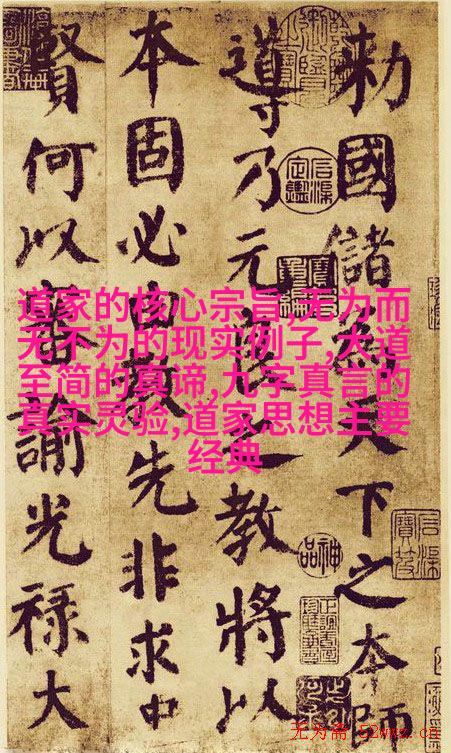 勅國儲為天下之本師
導乃元良之教將以
本固必由教先非求中
賢何以審諭光祿大
道家的核心宗旨,无为而
无不为的现实例子,大道
至简的真谛,九字真言的
真实灵验,道家思想主要
经典
神品
无为斋 52wwz.cn